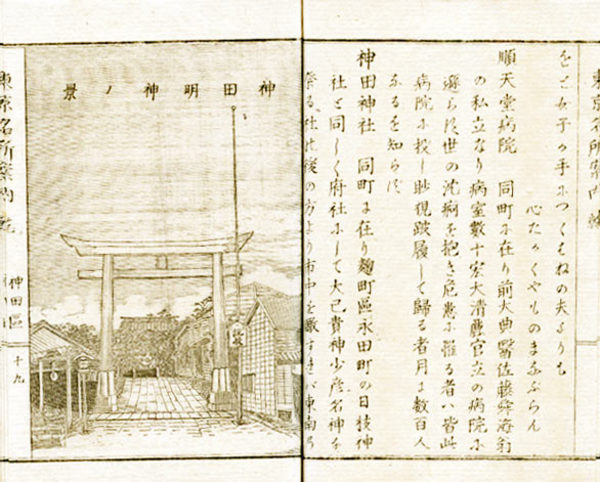 東京名所案内
をと女子の手につくはねの夫よりも
心たかくやものまなぶらん
順天堂病院 同町に在り前大典醫佐藤舜海翁
の私立なり病室數十宏大清麗官立の病院に
讓らず世の沈痾を抱き危患に罹る者ハ皆此
病院に投し眇視跛履して歸る者月に數百人
なるを知らず
神田神社 同町に在り麹町區永田町の日枝神
社と同しく府社にして大己貴神少彦名神を
祭る社は後の方より市中を瞰東南乃
神田明神ノ景
東京名所案内
神田區
十九